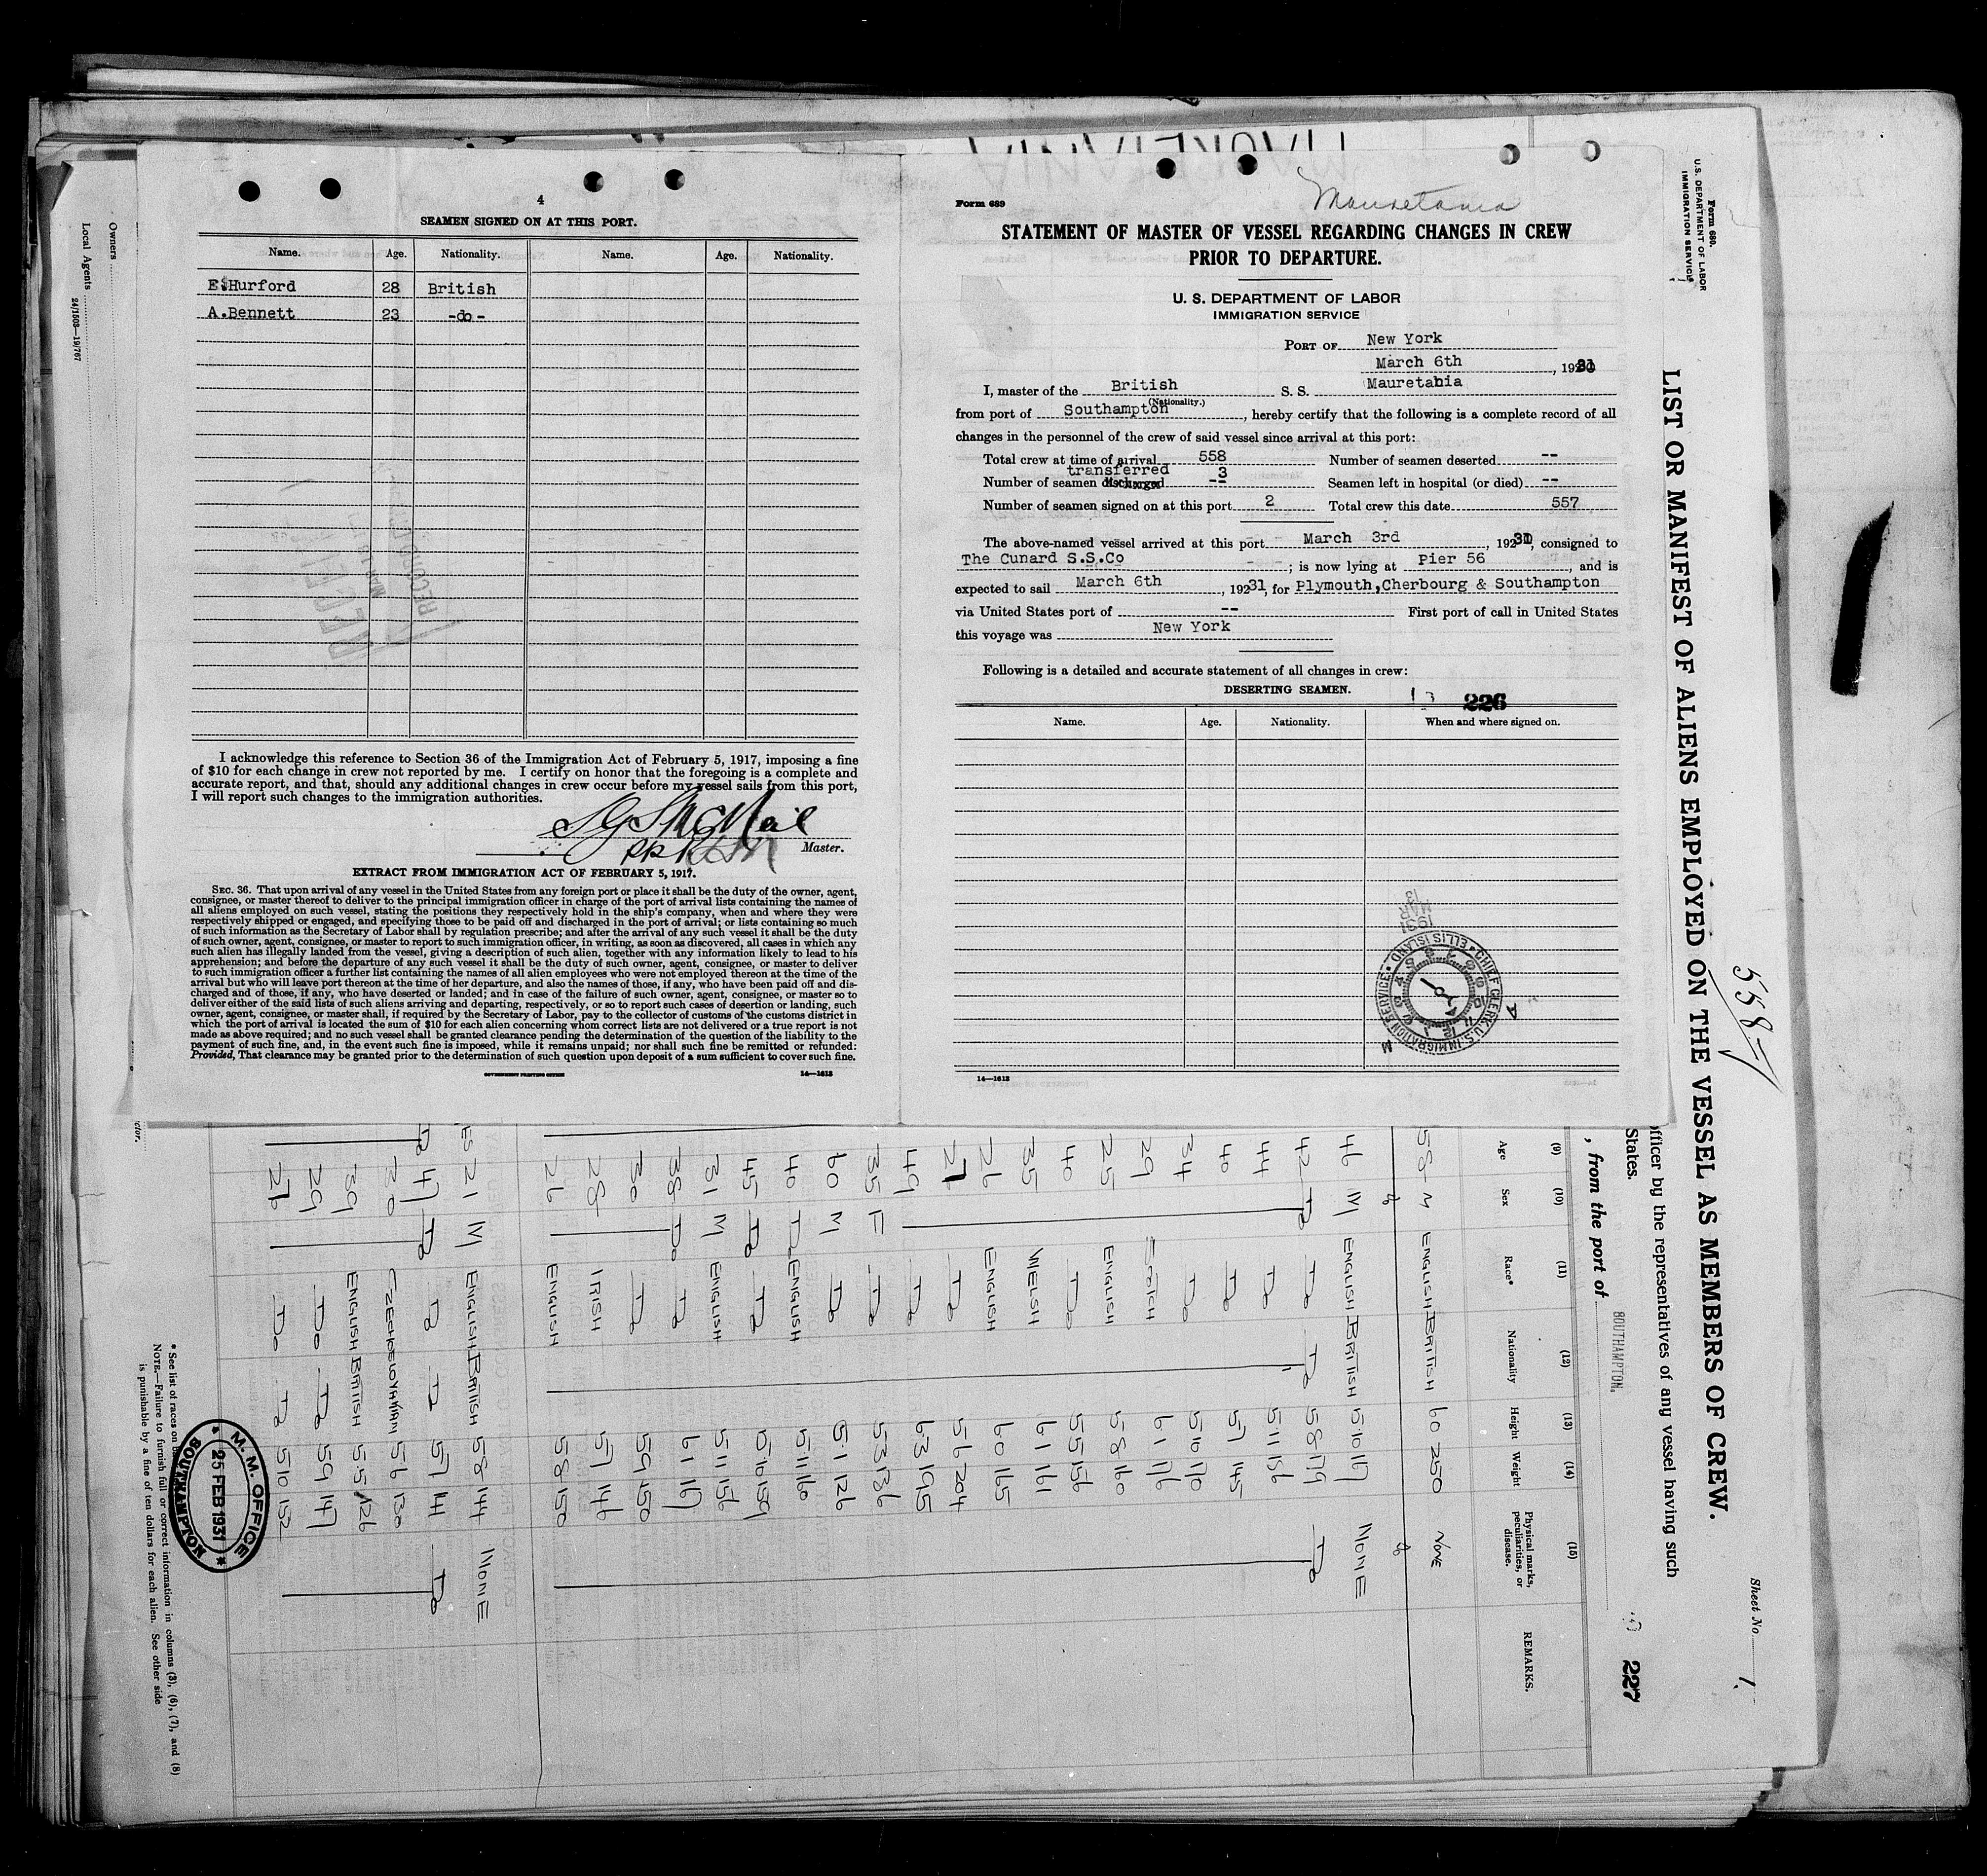 4
SEAMEN SIGNED ON AT THIS PORT.
Name. Age. Nationality. Name. Age. Nationality.
E Hurford 28 British
A.Bennett 23 -do-
I acknowledge this reference to Section 36 of the Immigration Act of February 5, 1917, imposing a fine
of $10 for each change in crew not reported by me. I certify on honor that the foregoing is a complete and
accurate report, and that, should any additional changes in crew occur before my vessel sails from this port,
I will report such changes to the immigration authorities.
Master.
EXTRACT FROM IMMIGRATION ACT OF FEBRUARY 5, 1917.
SEC. 36. That upon arrival of any vessel in the United States from any foreign port or place it shall be the duty of the owner, agent,
consignee, or master thereof to deliver to the principal immigration officer in charge of the port of arrival lists containing the names of
all aliens employed on such vessel, stating the positions they respectively hold in the ship's company, when and where they were
respectively shipped or engaged, and specifying those to be paid off and discharged in the port of arrival; or lists containing so much
of such information as the Secretary of Labor shall by regulation prescribe; and after the arrival of any such vessel it shall be the duty
of such owner, agent, consignee, or master to report to such immigration officer, in writing, as soon as discovered, all cases in which any
such alien has illegally landed from the vessel, giving a description of such alien, together with any information likely to lead to his
apprehension; and before the departure of any such vessel it shall be the duty of such owner, agent, consignee, or master to deliver
to such immigration officer a further list containing the names of all alien employees who were not employed thereon at the time of the
arrival but who will leave port thereon at the time of her departure, and also the names of those, if any, who have been paid off and dis-
charged and of those, if any, who have deserted or landed; and in case of the failure of such owner, agent, consignee, or master so to
deliver either of the said lists of such aliens arriving and departing, respectively, or so to report such cases of desertion or landing, such
owner, agent, consignee, or master shall, if required by the Secretary of Labor, pay to the collector of customs of the customs district in
which the port of arrival is located the sum of $10 for each alien concerning whom correct lists are not delivered or a true report is not
made as above required; and no such vessel shall be granted clearance pending the determination of the question of the liability to the
payment of such fine, and, in the event such fine is imposed, while it remains unpaid; nor shall such fine be remitted or refunded:
Provided, That clearance may be granted prior to the determination of such question upon deposit of a sum sufficient to cover such fine.
GOVERNMENT PRINTING OFFICE 14—1613
Form 689
Mauretania
STATEMENT OF MASTER OF VESSEL REGARDING CHANGES IN CREW
PRIOR TO DEPARTURE.
U. S. DEPARTMENT OF LABOR
IMMIGRATION SERVICE
PORT OF New York
March 6th, 1931
I, master of the British S. S. Mauretahia
(Nationality.)
from port of Southampton, hereby certify that the following is a complete record of all
changes in the personnel of the crew of said vessel since arrival at this port:
Total crew at time of arrival 558 Number of seamen deserted --
transferred 3
Number of seamen discharged -- Seamen left in hospital (or died) --
Number of seamen signed on at this port 2 Total crew this date 557
The above-named vessel arrived at this port March 3rd, 1931, consigned to
The Cunard S.S.Co; is now lying at Pier 56, and is
expected to sail March 6th, 19231, for Plymouth,Cherbourg & Southampton
via United States port of -- First port of call in United States
this voyage was New York
Following is a detailed and accurate statement of all changes in crew:
DESERTING SEAMEN.
226
Name. Age. Nationality. When and where signed on.
MAR 13
1931
CHIEF CLERK, U.S. IMMIGRATION SERVICE
14—1613
Form 680.
U.S. DEPARTMENT OF LABOR
IMMIGRATION SERVICE
Sheet No. 1
LIST OR MANIFEST OF ALIENS EMPLOYED ON THE VESSEL AS MEMBERS OF CREW.
558
officer by the representatives of any vessel having such
States.
227
, from the port of SOUTHAMPTON.
(9) (10) (11) (12) (13) (14) (15)
Age Sex Race* Nationality Height Weight Physical marks, peculiarities, or disease. REMARKS.
58 M ENGLISH BRITISH 60 250 NONE
46 M ENGLISH BRITISH 510 117 NONE
42 Do Do Do 58 179 Do
44 Do 511 156
40 Do 57 145
34 Do 510 170
29 SCOTCH 61 176
25 ENGLISH 58 160
40 Do 55 156
35 WELSH 61 161
26 ENGLISH 60 165
27 Do 56 204
49 Do 63 195
35 F Do 53 136
60 M Do 51 126
40 Do ENGLISH 511 160
45 Do Do 510 159
31 M ENGLISH 511 156
38 Do Do 61 167
30 Do 59 150
28 IRISH 57 146
26 ENGLISH 58 150
21 M ENGLISH BRITISH 58 144 NONE
47 Do Do Do 57 141 Do
30 CZECHOSLOVAKIAN 56 130
39 ENGLISH BRITISH 55 126
29 Do Do 59 147
27 Do Do 510 132
M. M. OFFICE
25 FEB 1931
SOUTHAMPTON
* See list of races on
NOTE.—Failure to furnish full or correct information in columns (3), (6), (7), and (8)
is punishable by a fine of ten dollars for each alien. See other side
Owners
Local Agents
24/1503—19/767